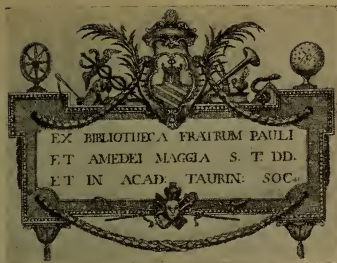 EX BIBLIOTHECA FRATRUM PAULI
ET AMEDEI MAGGIA S. T. DD.
ET IN ACAD: TAURIN: SOC.